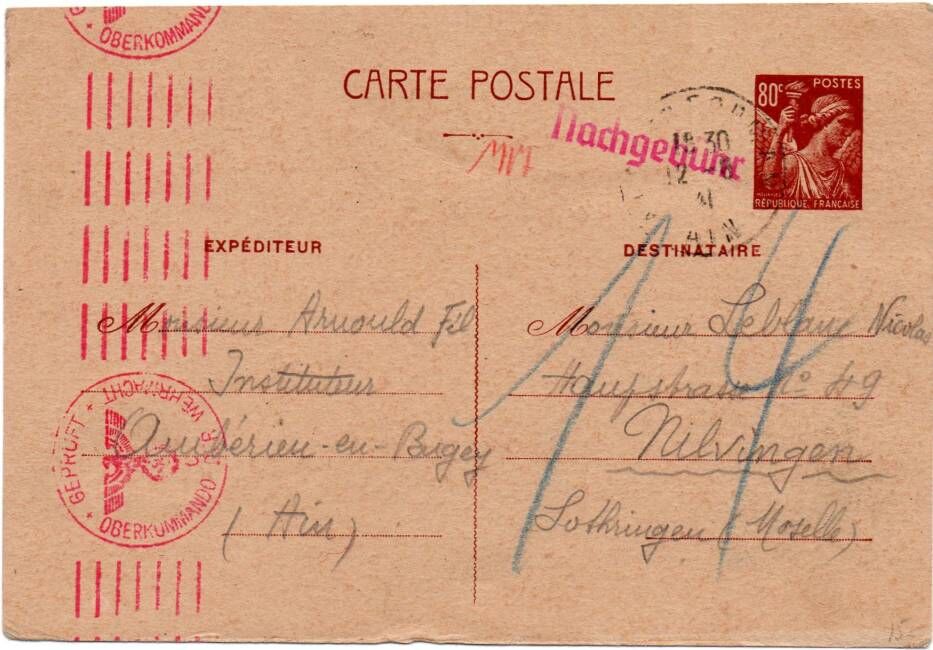 OBERKOMMAN
CARTE POSTALE
80c POSTES
RÉPUBLIQUE FRANÇAISE
Nachgebühr
18 30
12
41
AIN
EXPÉDITEUR
Monsieur Arnould Fél
Instituteur
Ambérieu-en-Bugey
(Ain)
DESTINATAIRE
Monsieur Leblanc Nicolas
Haupstrasse No 49
Nilvingen
Lothringen (Moselle)
14
GEPRÜFT
OBERKOMMANDO DER WEHRMACHT
15-